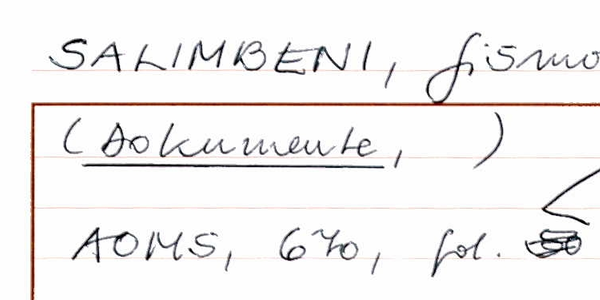 SALIMBENI, fismo
(Dokumente, )
AOMS, 670, fol.